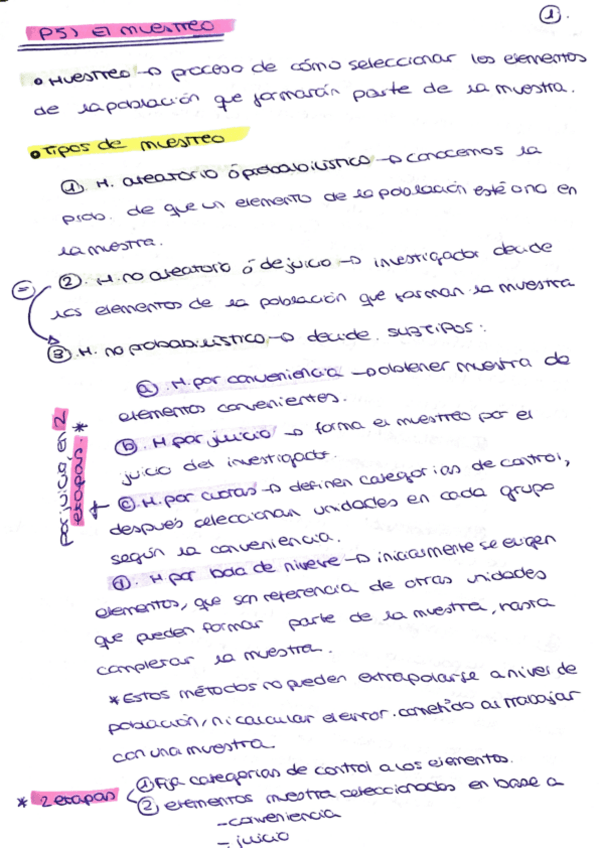 1.
P5) El muestreo
• Muestreo → proceso de cómo seleccionar los elementos
de la población que formarán parte de la muestra.
• Tipos de muestreo
①. M. aleatorio ó probabilístico → conocemos la
prob. de que un elemento de la población esté o no en
la muestra.
②. M. no aleatorio ó de juicio → investigador decide
los elementos de la población que forman la muestra
③. M. no probabilístico → decide. SUBTIPOS:
ⓐ. M. por conveniencia → obtener muestra de
elementos convenientes.
ⓑ. M por juicio → forma el muestreo por el
juicio del investigador.
+ ⓒ. M. por cuotas → definen categorias de control,
después seleccionan unidades en cada grupo
según la conveniencia.
por juicio, en 2
etapas. *
ⓓ. M por bola de nieve → inicialmente se eligen
elementos, que son referencia de otras unidades
que pueden formar parte de la muestra, hasta
completar la muestra.
* Estos métodos no pueden extrapolarse a nivel de
población, ni calcular el error cometido al trabajar
con una muestra.
* 2 etapas ① Fija categorías de control a los elementos.
② elementos muestra seleccionados en base a
- conveniencia
- juicio